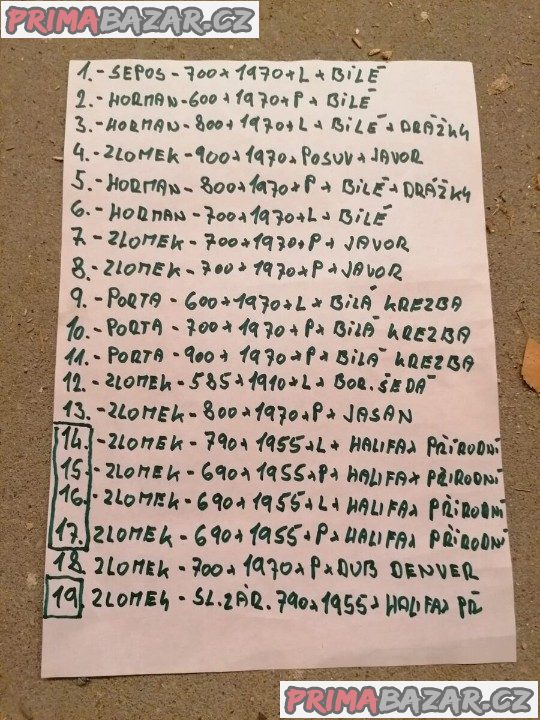 PRIMABAZAR.CZ
1.-SEPOS-700x1970+L+BÍLÉ
2.-HORMAN-600x1970+P+BÍLÉ
3.-HORMAN-800x1970+L+BÍLÉ+DRÁŽKY
4.-ZLOMEK-900x1970+POSUV+JAVOR
5.-HORMAN-800x1970+P+BÍLÉ+DRÁŽKY
6.-HORMAN-700x1970+L+BÍLÉ
7.-ZLOMEK-700x1970+P+JAVOR
8.-ZLOMEK-700x1970+P+JAVOR
9.-PORTA-600x1970+L+BÍLÁ KREZBA
10.-PORTA-700x1970+P+BÍLÁ KREZBA
11.-PORTA-900x1970+P+BÍLÁ KREZBA
12.-ZLOMEK-585x1910+L+BOR.ŠEDÁ
13.-ZLOMEK-800x1970+P+JASAN
14.-ZLOMEK-790x1955+L+HALIFAX PŘÍRODNÍ
15.-ZLOMEK-690x1955+P+HALIFAX PŘÍRODNÍ
16.-ZLOMEK-690x1955+L+HALIFAX PŘÍRODNÍ
17. ZLOMEK-690x1955+P+HALIFAX PŘÍRODNÍ
18. ZLOMEK-700x1970+P+DUB DENVER
19 ZLOMEK-SL.ZÁR.790x1955+HALIFAX PŘ
PRIMABAZAR.CZ